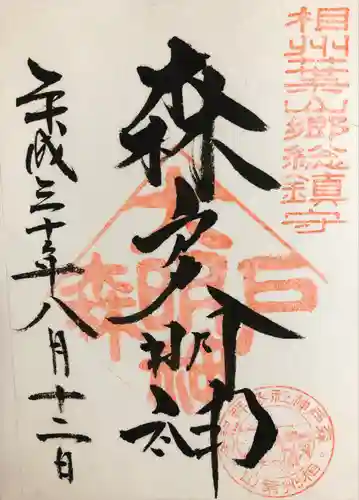 相州葉山郷総鎮守
森戸大明神
森戸大明神
平成三十年八月十二日